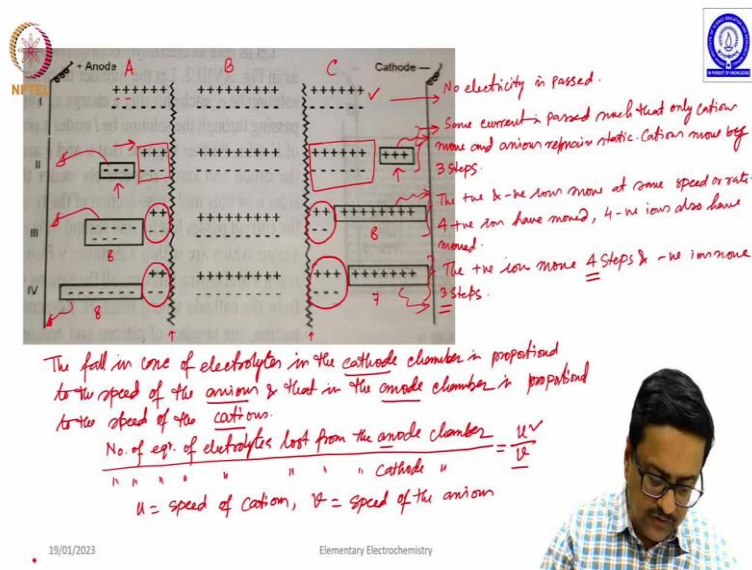 NPTEL
+ Anode
A
B
C
Cathode —
I
+++++
++++++++
+++++
No electricity is passed.
Some current is passed such that only cations
move and anions remain static. Cations move by
3 steps.
II
The +ve & -ve ions move at same speed or rate.
4 +ve ion have moved, 4 -ve ions also have
moved.
III
8
8
The +ve ions move 4 steps & -ve ions move
3 steps.
IV
8
7
The fall in conc of electrolytes in the cathode chamber is proportional
to the speed of the anions & that in the anode chamber is proportional
to the speed of the cations.
No. of eqv. of electrolytes lost from the anode chamber = u
" " " " " " " cathode " v
u = speed of cation, v = speed of the anion
19/01/2023
Elementary Electrochemistry